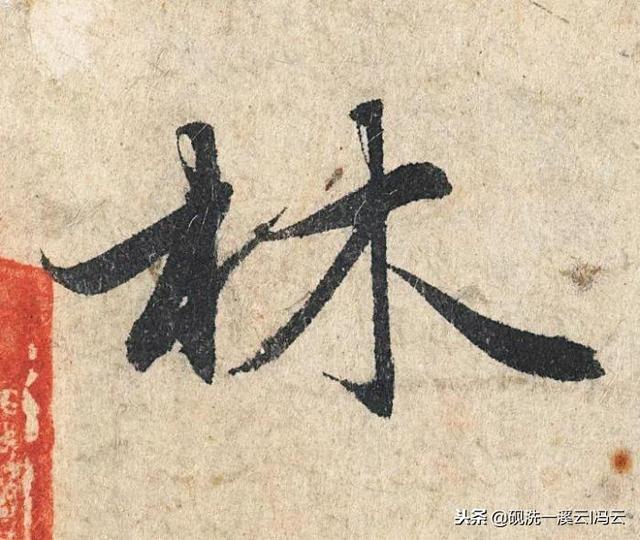 林
头条 @砚洗一溪云|冯云